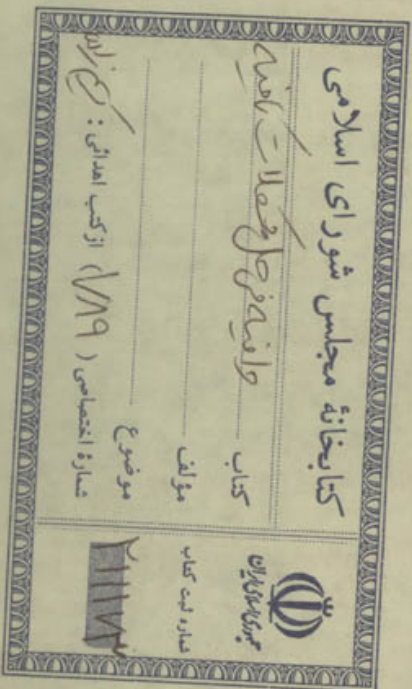 کتابخانهٔ مجلس شورای اسلامی
کتاب وافیه فی حل مشکلات کافیه
مؤلف
موضوع
شمارهٔ اختصاصی ( ۱۷۸۹ ) از کتب اهدائی :
جمهوری اسلامی ایران
شماره ثبت کتاب